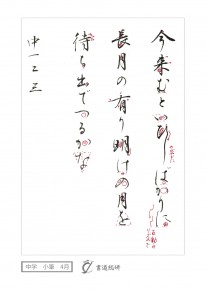 今来むと いひし ばかりに
長月の 有り 明けの 月を
待ち 出で つる かな
中一 二 三
中学 小筆 4月
書道総研